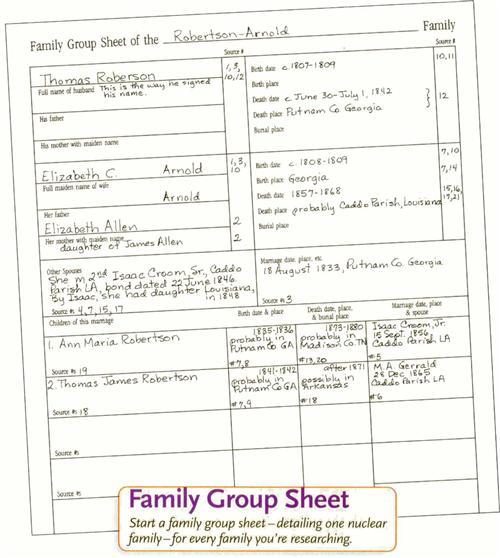 Family Group Sheet of the Robertson-Arnold Family
Source #
Source #
Thomas Roberson
1, 3,
10, 12
Full name of husband This is the way he signed
his name.
His father
His mother with maiden name
Birth date c. 1807-1809
10, 11
Birth place
Death date c June 30-July 1, 1842
} 12
Death place Putnam Co Georgia
Burial place
Elizabeth C. Arnold
1, 3,
10
Full maiden name of wife
Arnold
Her father
Elizabeth Allen
2
Her mother with maiden name
daughter of James Allen
2
Birth date c. 1808-1809
7, 10
Birth place Georgia
7, 14
Death date 1857-1868
15, 16,
17, 21
Death place probably Caddo Parish, Louisiana
Burial place
Other Spouses
She m 2nd Isaac Croom, Sr., Caddo
Parish LA, bond dated 22 June 1846.
By Isaac, she had daughter Louisiana,
in 1848
Source #s 4, 7, 15, 17
Marriage date, place, etc.
18 August 1833, Putnam Co. Georgia
Source #s 3
Children of this marriage
Birth date & place
Death date, place,
& burial place
Marriage date, place
& spouse
1. Ann Maria Robertson
Source #s 19
1835-1836
probably in
Putnam Co GA
#7,8
1873-1880
probably in
Madison Co. TN
#13,20
Isaac Croom, Jr.
15 Sept. 1856,
Caddo Parish LA
#5
2. Thomas James Robertson
Source #s 18
1841-1842
probably in
Putnam Co GA
#7,9
after 1871
possibly in
Arkansas
#18
M.A. Gerrald
28 Dec 1865
Caddo Parish LA
#6
Source #s
Source #s
Family Group Sheet
Start a family group sheet – detailing one nuclear
family – for every family you're researching.